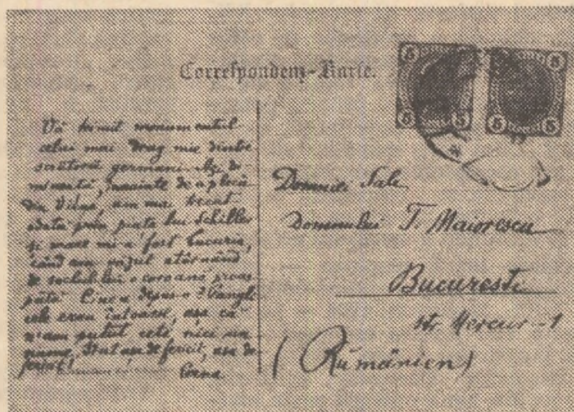 Correspondenz-Karte.
5 5 5 5
5 5
Vă trimit monumentul
celui mai drag mie dintre
scriitorii germani. Az di-
mineață, înainte de a pleca
din Viena, am mai trecut
odată prin piața lui Schiller
și mare mi-a fost bucuria,
când am văzut atârnând
de soclul lui o coroană proas-
pătă. Cine o depus-o? Pangli-
cele erau întoarse, așa că
n'am putut ceti nici un
nume. așa de fericit, așa de
fericit!
Domniei Sale
Domnului T. Maiorescu
București
str. Mercur - 1
(Rumänien)